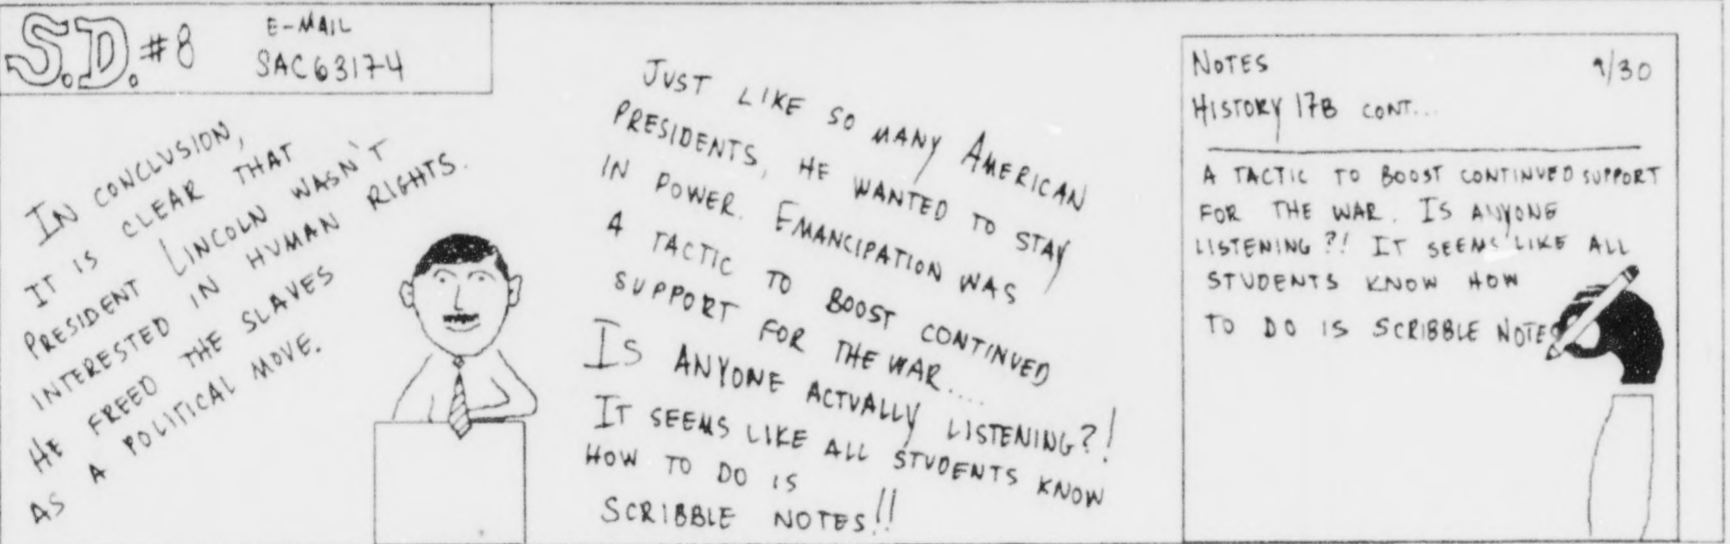 S.D. #8
E-MAIL
SAC63174
IN CONCLUSION,
IT IS CLEAR THAT
PRESIDENT LINCOLN WASN'T
INTERESTED IN HUMAN RIGHTS.
HE FREED THE SLAVES
AS A POLITICAL MOVE.
JUST LIKE SO MANY AMERICAN
PRESIDENTS, HE WANTED TO STAY
IN POWER. EMANCIPATION WAS
A TACTIC TO BOOST CONTINUED
SUPPORT FOR THE WAR....
IS ANYONE ACTUALLY LISTENING?!
IT SEEMS LIKE ALL STUDENTS KNOW
HOW TO DO IS
SCRIBBLE NOTES!!
NOTES 9/30
HISTORY 17B CONT...
A TACTIC TO BOOST CONTINUED SUPPORT
FOR THE WAR. IS ANYONE
LISTENING?! IT SEEMS LIKE ALL
STUDENTS KNOW HOW
TO DO IS SCRIBBLE NOTES